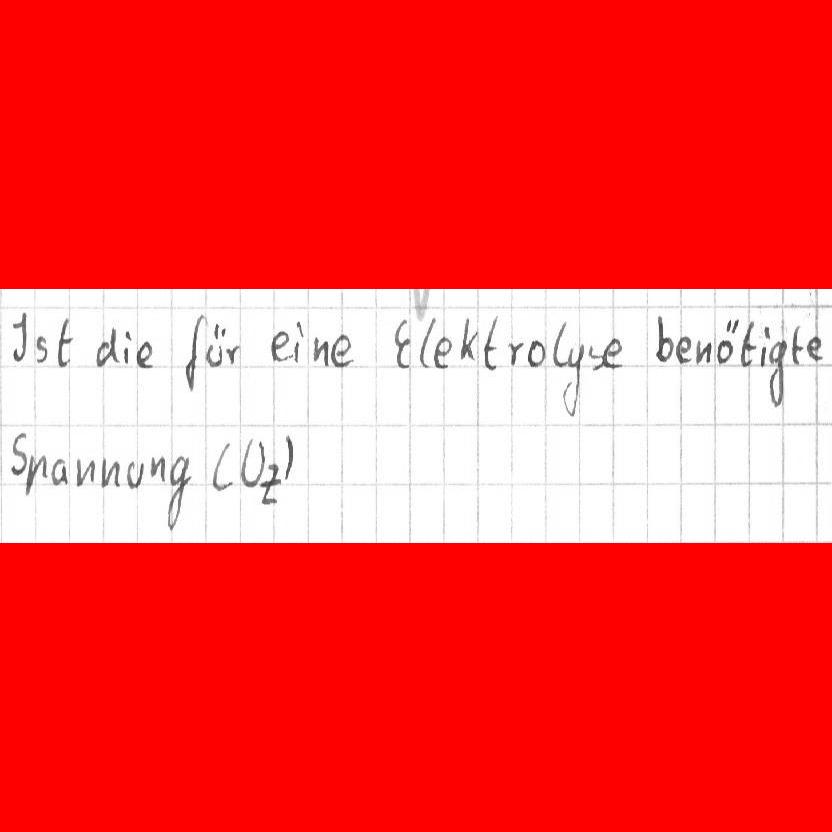 Ist die für eine Elektrolyse benötigte
Spannung (Uz)